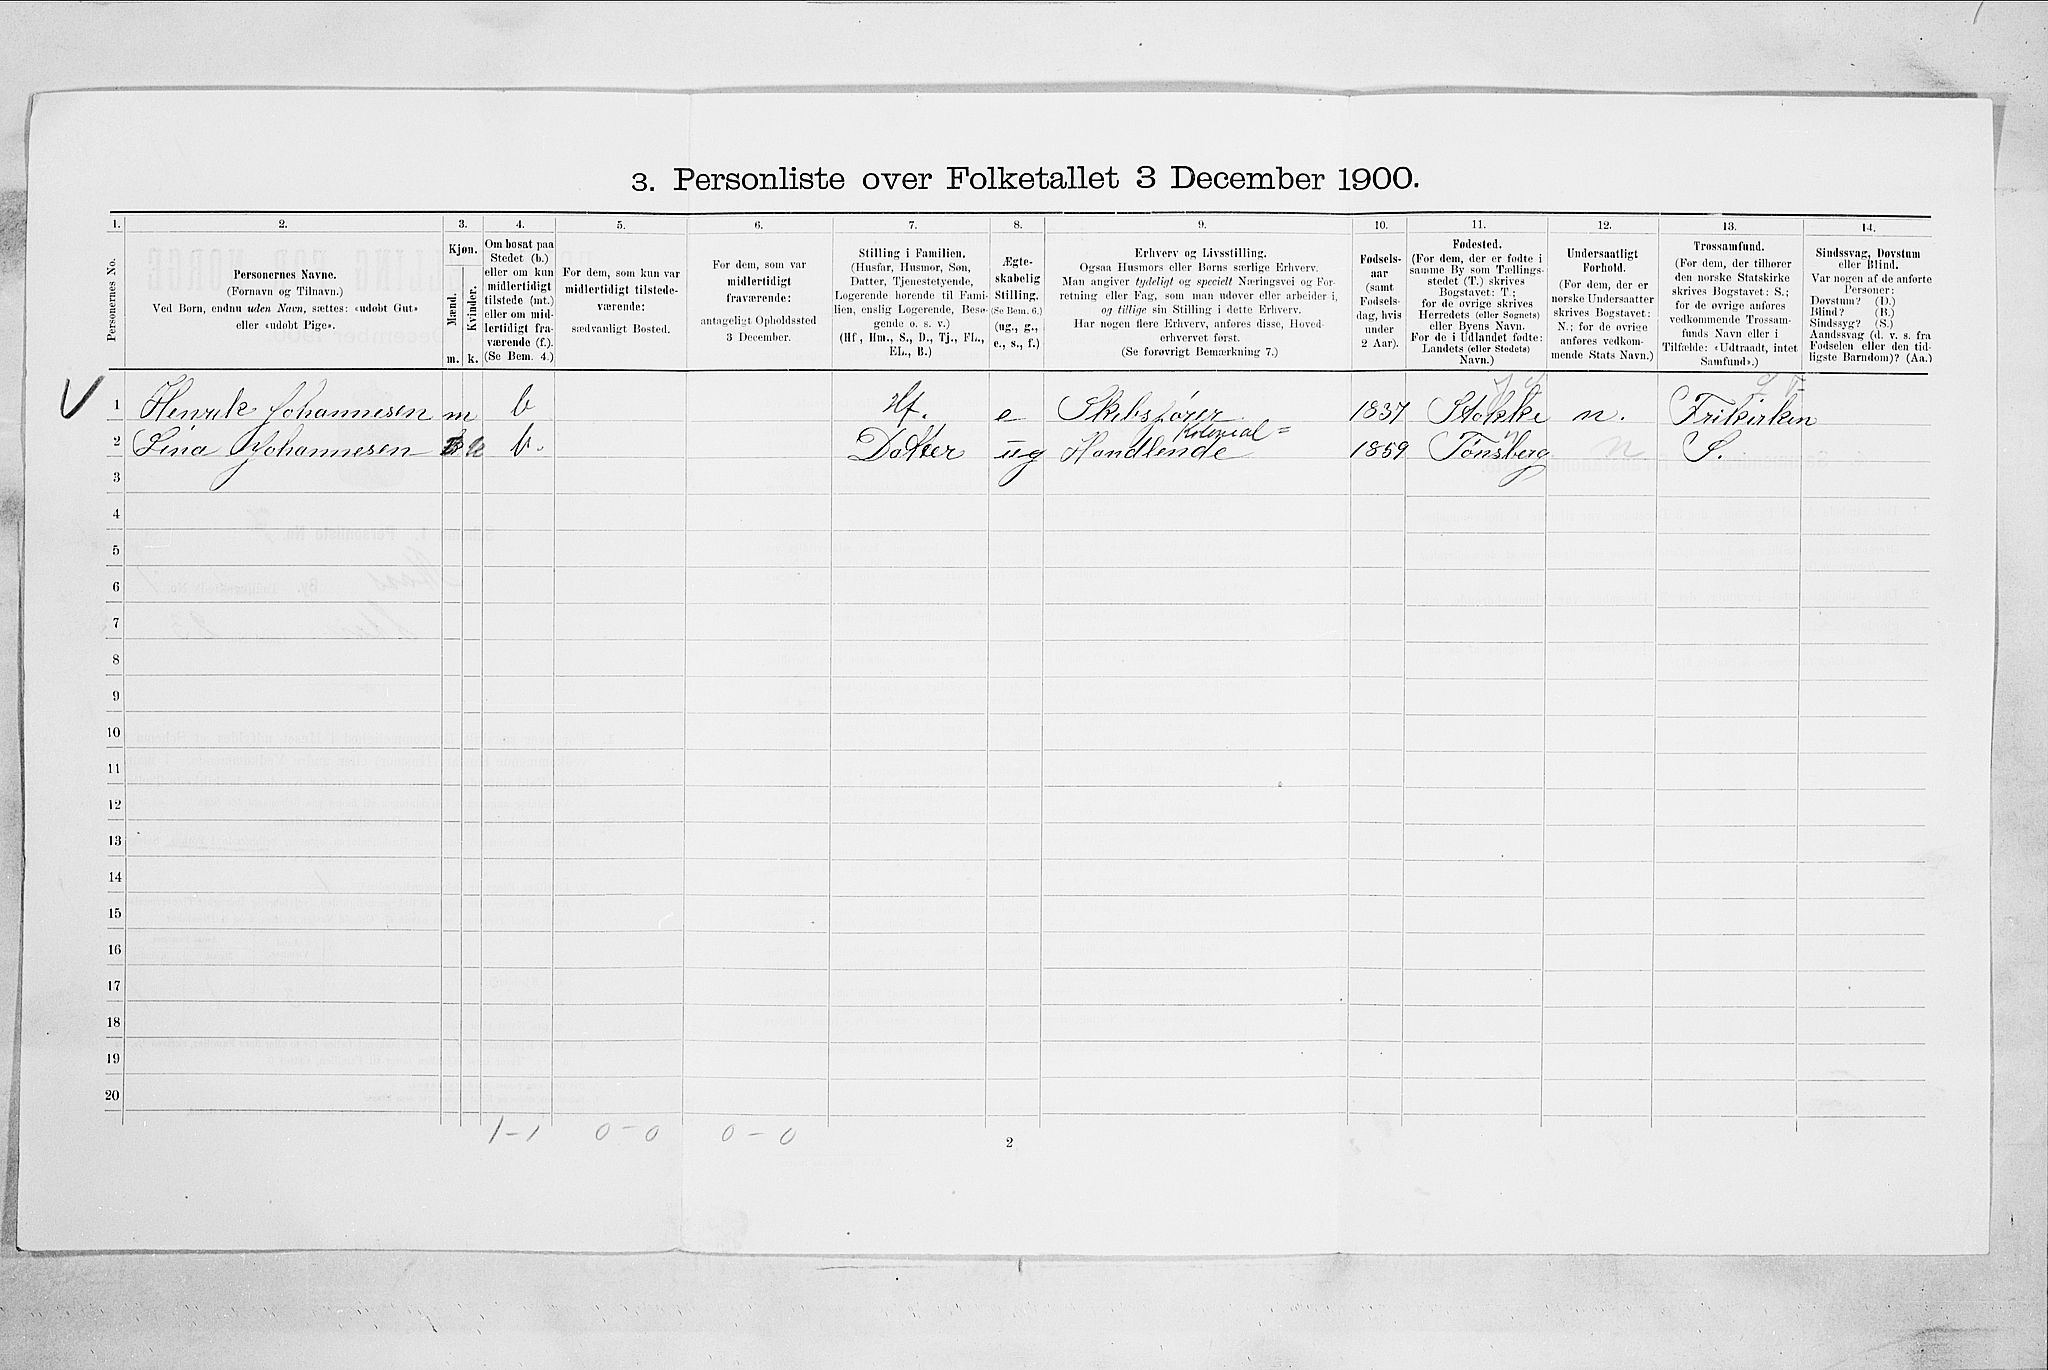 3. Personliste over Folketallet 3 December 1900.
1. 2. 3. 4. 5. 6. 7. 8. 9. 10. 11. 12. 13. 14.
Personernes No.
Personernes Navne.
(Fornavn og Tilnavn.)
Ved Børn, endnu uden Navn, sættes: «udøbt Gut»
eller «udøbt Pige».
Kjøn.
Mænd.
Kvinder.
m. k.
Om bosat paa
Stedet (b.)
eller om kun
midlertidigt
tilstede (mt.)
eller om mid-
lertidigt fra-
værende (f.).
(Se Bem. 4.)
For dem, som kun var
midlertidigt tilstede-
værende:
sædvanligt Bosted.
For dem, som var
midlertidigt
fraværende:
antageligt Opholdssted
3 December.
Stilling i Familien.
(Husfar, Husmor, Søn,
Datter, Tjenestetyende,
Logerende hørende til Fami-
lien, enslig Logerende, Besø-
gende o. s. v.)
(Hf, Hm., S., D., Tj., FL.,
EL., B.)
Ægte-
skabelig
Stilling.
(Se Bem. 6.)
(ug., g.,
e., s., f.)
Erhverv og Livsstilling.
Ogsaa Husmors eller Børns særlige Erhverv.
Man angiver tydeligt og specielt Næringsvei og For-
retning eller Fag, som man udøver eller arbeider i,
og tillige sin Stilling i dette Erhverv.
Har nogen flere Erhverv, anføres disse, Hoved-
erhvervet først.
(Se forøvrigt Bemærkning 7.)
Fødsels-
aar
(samt
Fødsels-
dag, hvis
under
2 Aar).
Fødested.
(For dem, der er fødte i
samme By som Tællings-
stedet (T.) skrives
Bogstavet: T.;
for de øvrige skrives
Herredets (eller Sognets)
eller Byens Navn.
For de i Udlandet fødte:
Landets (eller Stedets)
Navn.)
Undersaatligt
Forhold.
(For dem, der er
norske Undersaatter
skrives Bogstavet:
N.; for de øvrige
anføres vedkom-
mende Stats Navn.)
Trossamfund.
(For dem, der tilhører
den norske Statskirke
skrives Bogstavet: S.;
for de øvrige anføres
vedkommende Trossam-
funds Navn eller i
Tilfælde: «Udtraadt, intet
Samfund».)
Sindssvag, Døvstum
eller Blind.
Var nogen af de anførte
Personer:
Døvstum? (D.)
Blind? (B.)
Sindssyg? (S.)
Aandssvag (d. v. s. fra
Fødselen eller den tid-
ligste Barndom)? (Aa.)
V
1 Henrik Johannesen m b Hf. e Skibsfører 1837 Stokke n. Frikirken
Kolonial=
2 Lina Johannesen k b. Datter ug Handlende 1859 Tønsberg n S.
3
4
5
6
7
8
9
10
11
12
13
14
15
16
17
18
19
20
1-1 0-0 0-0
2